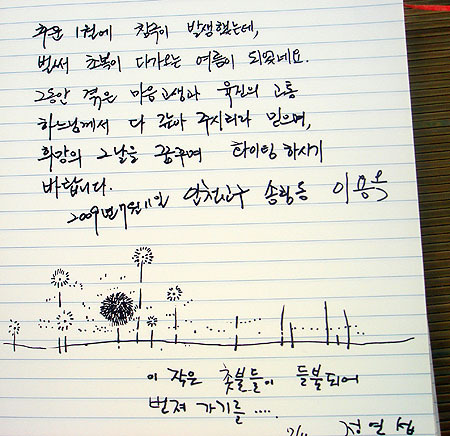 추운 1월에 참극이 발생했는데,
벌써 초복이 다가오는 여름이 되었네요.
그동안 겪은 마음고생과 육신의 고통
하느님께서 다 갚아 주시리라 믿으며,
희망의 그날을 꿈꾸며 화이팅 하시기
바랍니다.
2009년 7월 11일 송림동
이 작은 촛불들이 들불되어
번져 가기를 ....